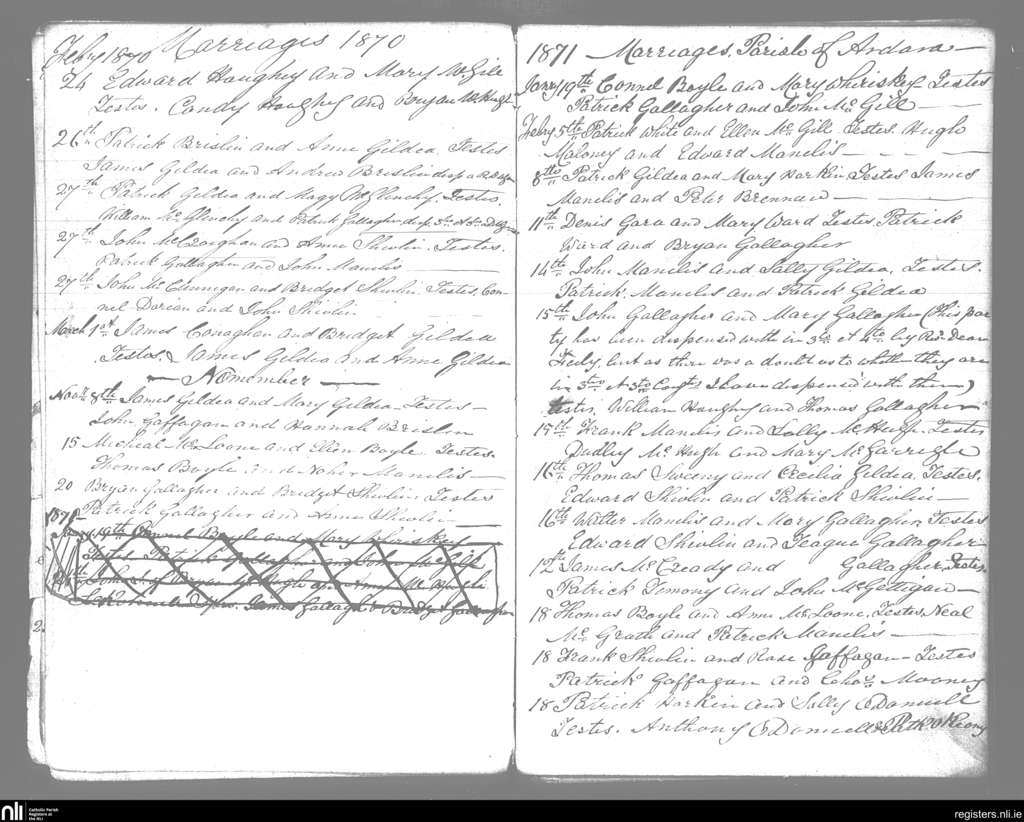 Feby 1870 Marriages 1870
24 Edward Haughey and Mary McGill
Testes. Condy Haughey and Bryan McHugh
26th Patrick Brislin and Anne Gildea. Testes
James Gildea and Andrew Breslin
27th Patrick Gildea and Magy McGlinchy. Testes.
William Mc Glinchy and Patrick Gallagher
27th John Mc and Anne Shivlin. Testes.
Patrick Gallagher and John Manelis
27th John Mc and Bridget Shivlin. Testes. Con-
nel Dorian and John Shivlin
March 1st James Conaghan and Bridget Gildea
Testes. James Gildea and Anne Gildea
Nomember
Novr 8th James Gildea and Mary Gildea. Testes
John Gaffagan and Hannah Brislin
15 Micheal McLoone and Ellen Boyle. Testes.
Thomas Boyle and Manelis
20 Bryan Gallagher and Bridget Shivlin. Testes
Patrick Gallagher and Anne Shivlin
1871
Jany 19th Connel Boyle and Mary Whiriskey
Testes Patrick Gallagher and John McGill
1871 Marriages. Parish of Ardara
Jany 19th Connel Boyle and Mary Whiriskey Testes
Patrick Gallagher and John Mc Gill
Feby 5th Patrick White and Ellen Mc Gill. Testes. Hugh
Maloney and Edward Manelis
8th Patrick Gildea and Mary Harkin. Testes James
Manelis and Peter Brennan
11th Denis Gara and Mary Ward Testes. Patrick
Ward and Bryan Gallagher
14th John Manelis and Sally Gildea. Testes.
Patrick. Manelis and Patrick Gildea
15th John Gallagher and Mary Gallagher (This par
ty has been dispensed with in 3rd et 4th by Rev. Dean
Feely, but as there was a doubt as to whether they are
in 3rd et 3rd I have dispensed with them)
testes. William Haughy and Thomas Gallagher
15th Frank Manelis and Sally McHugh. Testes
Dudley Mc Hugh and Mary
16th Thomas Sweeny and Cecilia Gildea. Testes.
Edward Shivlin and Patrick Shivlin
16th Walter Manelis and Mary Gallagher, Testes
Edward Shivlin and Teague Gallagher
12th James McCready and Gallagher, Testes.
Patrick Timony and John McGettigan
18 Thomas Boyle and Anne McLoone, Testes. Neal
Mc Grath and Patrick Manelis
18 Frank Shivlin and Rose Gaffagan - Testes
Patrick Gaffagan and Mooney
18 Patrick Harkin and Sally O'Donnell
Testes. Anthony O'Donnell & Patk
nli Catholic Parish
Registers at
the NLI
registers.nli.ie